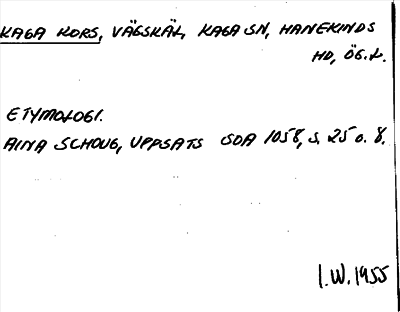 KAGA KORS, VÄGSKÄL, KAGA SN, HANEKINDS
HD, ÖG.L.
ETYMOLOGI.
AINA SCHOUG, UPPSATS SOA 1058, S. 25 O. 8.
I.W. 1955